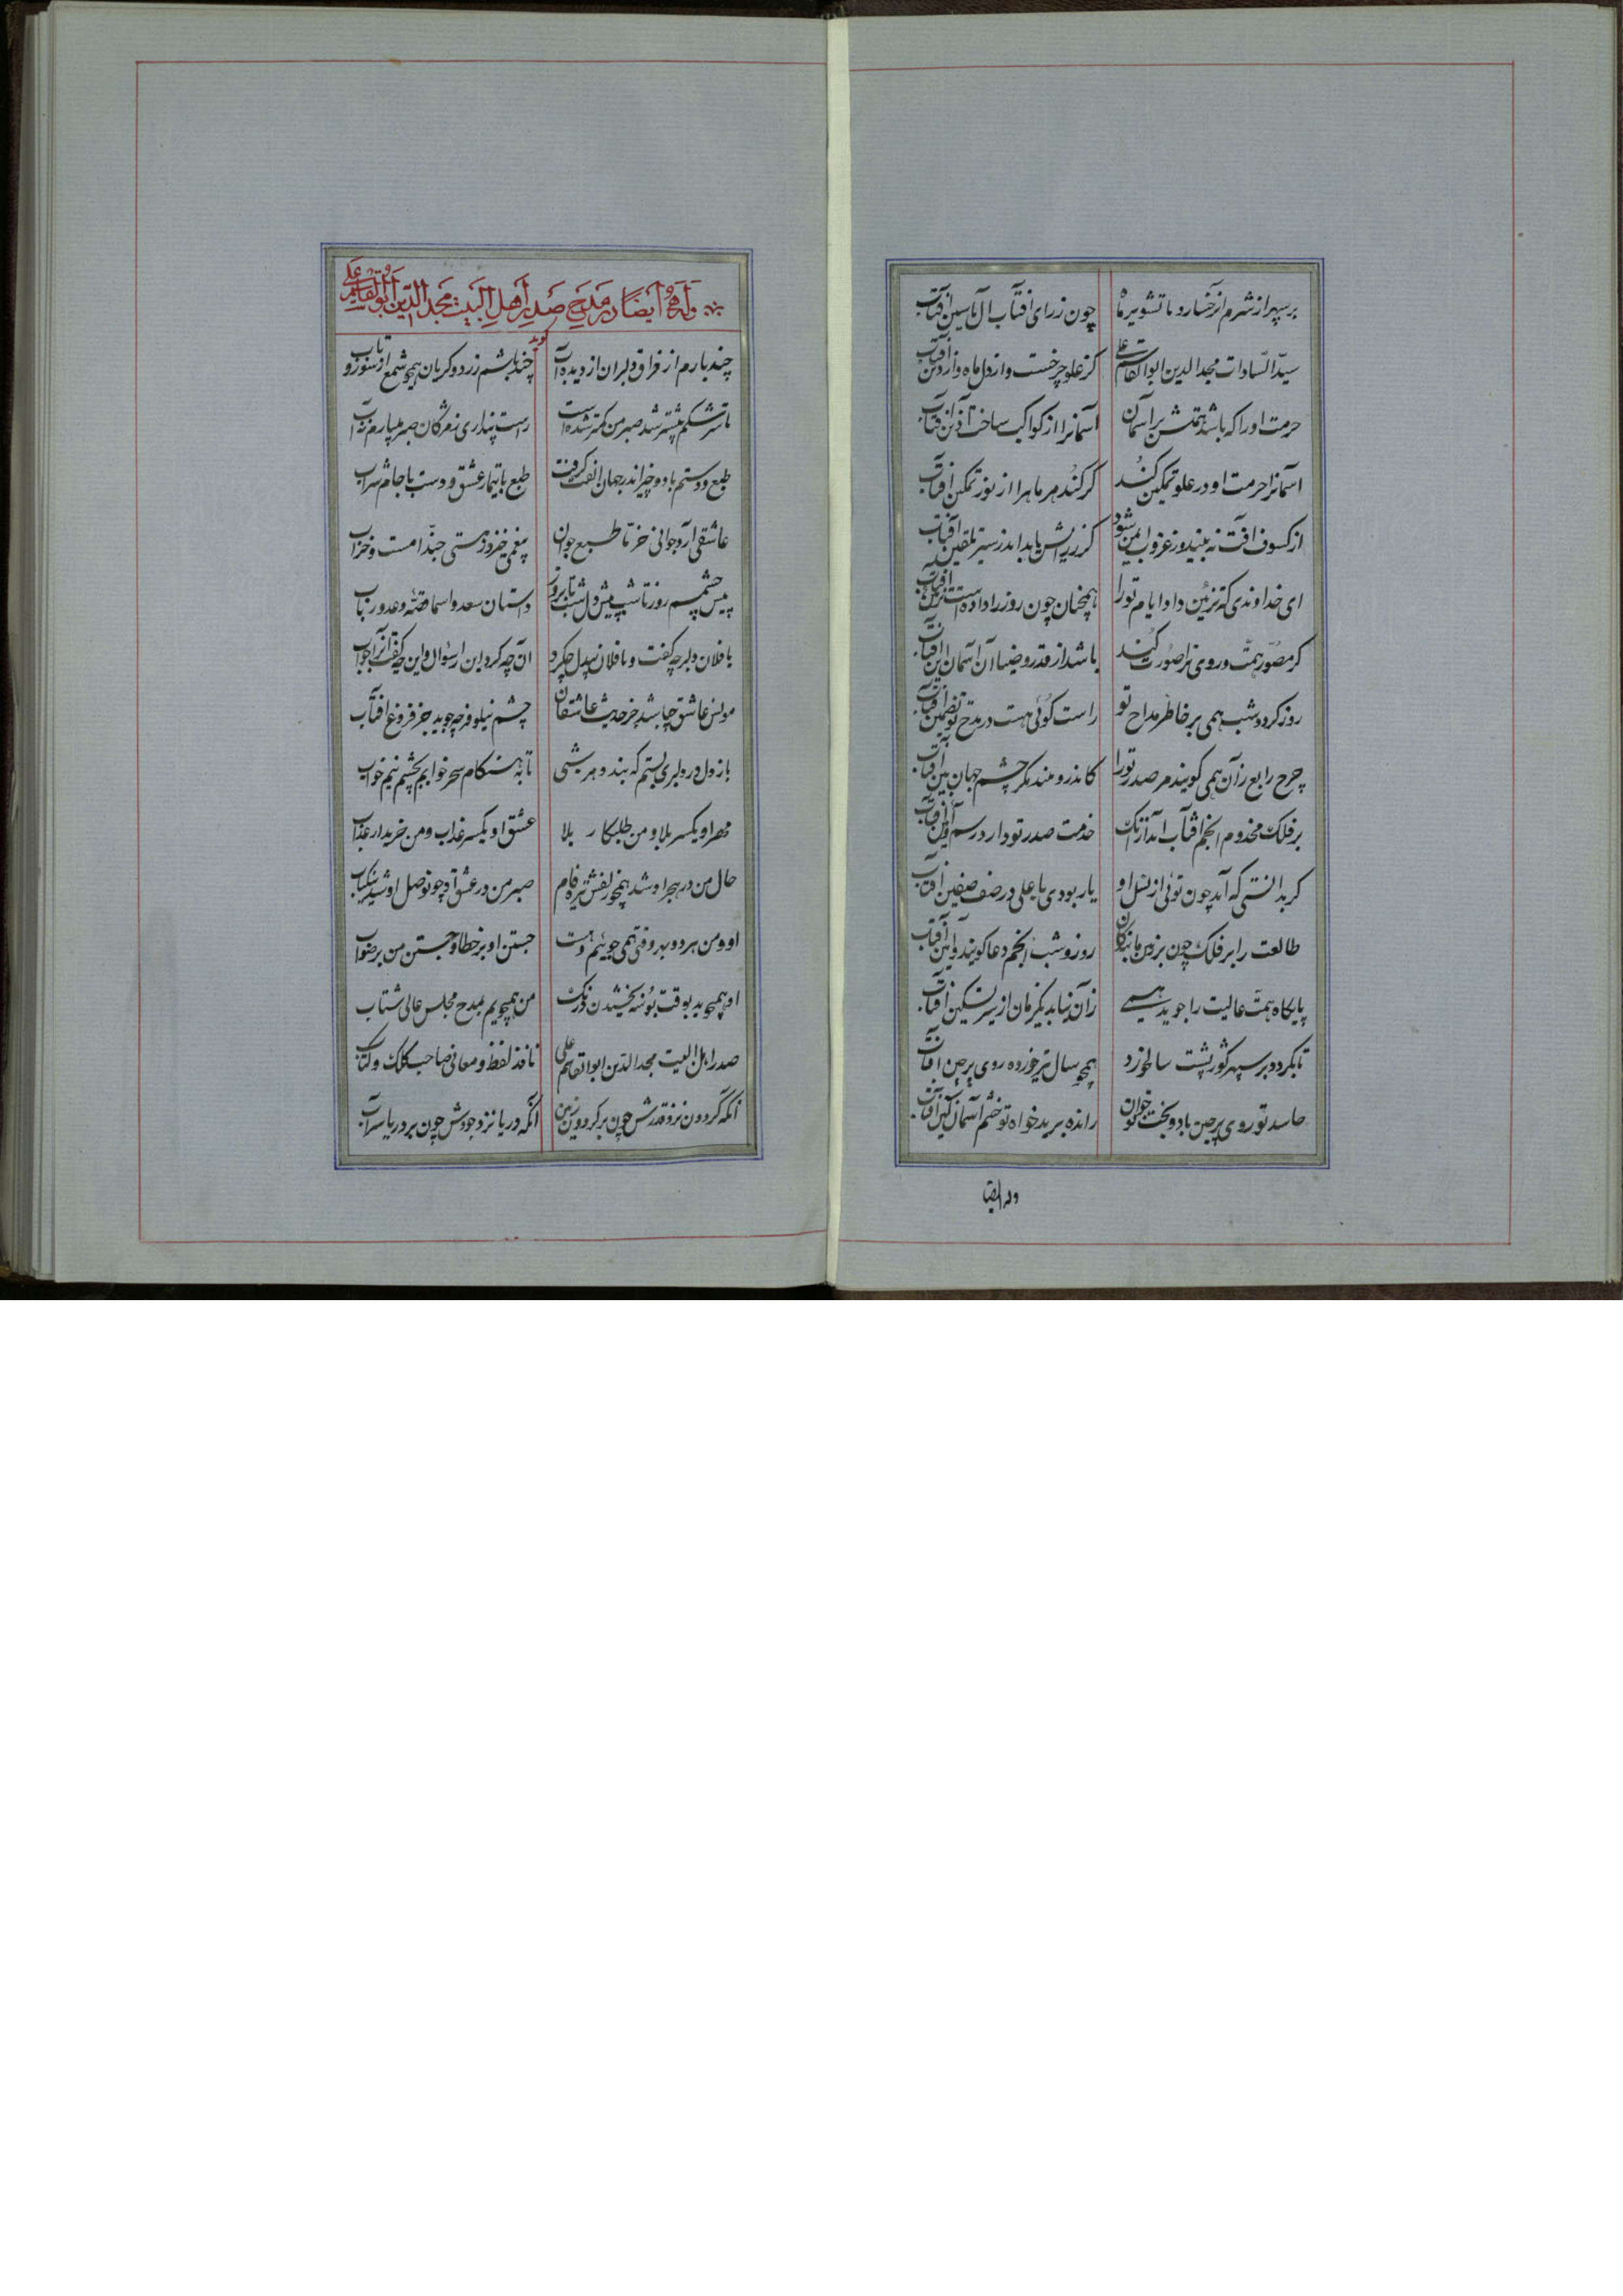 بر سپهر از شرم از رخسار و با تشویر ماه چون ز رای افتاب آل یاسین افتاب
سیّد السّادات مجد الدین ابوالقاسم علی کز علو چرخست و از دل ماه و از دین افتاب
حرمت او را که باشد همتش بر آسمان آسمانرا از کواکب ساخت آذین افتاب
آسمانرا حرمت او در علو تمکین کند کر کند مر ماه را از نور تمکین افتاب
از کسوف افت نه بیند وز غروب ایمن شود کر ز رایش یابد اندر سیر تلقین افتاب
ای خداوندی که تزئین داد ایام تو را همچنان چون روز را داده است تزئین افتاب
کر مصوّر همّت و روی ترا صورت کند باشد از قدر و ضیا آن آسمان این افتاب
روز کردد شب همی بر خاطر مداح تو راست کوئی هست در مدح تو تضمین افتاب
چرخ رابع زآن همی کویند مر صدر تو را کاندرو مند مکر چشم جهان بین افتاب
بر فلک مخدوم انجم افتاب آمد ازآنک خدمت صدر تو دارد رسم و آئین افتاب
کر بدانستی که آید چون توئی از نسل او یار بودی با علی در صف صفین افتاب
طالعت را بر فلک چون بر زمین بندکان روز و شب انجم دعا کویند و آمین آفتاب
پایکاه همّت عالیت را جوید همی زآن نیابد یکزمان از سیر تسکین افتاب
تا بکردد بر سپهر کوژ پشت سالخورد همچو سال تیر خورده روی پر چین افتاب
حاسد تو روی پر چین باد و بخت تو جوان رانده بر بدخواه تو خشم آسمان کین افتاب
وله ایضا
وله ایضا در مدح صدر اهل البیت مجد الدین ابوالقاسم علی کوید
چند بارم از فراق دلبران از دیده آب چند باشم زرد و کریان همچو شمع از سوز و تاب
تا سرشکم بیشتر شد صبر من کمتر شده است راست پنداری ز مژکان صبر میبارم نه آب
طبع و دستم با دو چیز اندر جهان الفت کرفت طبع با تیمار عشق و دست با جام شراب
عاشقی آرد جوانی خز تا طبع جوان بیغمی خیزد ز مستی حبّذا مست و خراب
پیش چشمم روز تا شب پیش دل شب تا بروز داستان سعد و اسما قصّه وعد و رباب
با فلان دلبر چه کفت و با فلان بیدل چه کرد آن چه کرد این را سئوال و این چه کفت آنرا جواب
مونس عاشق چه باشد جز حدیث عاشقان چشم نیلوفر چه جوید جز فروغ افتاب
باز دل در دلبری بستم که بندد هر شبی تا به هنکام سحر خوابم بچشم نیم خواب
مهر او یکسر بلا و من طلبکار بلا عشق او یکسر عذاب و من خریدار عذاب
حال من در هجر او شد همچو زلفش تیره فام صبر من در عشق او چون وصل او شد تنکیاب
او و من هر دو بهر وقتی همی جوئیم و هست جستن او بر خطا و جستن من بر صواب
او همیجوید بوقت بوسه بخشیدن درنک من همیجویم بمدح مجلس عالی شتاب
صدر اهل البیت مجد الدین ابوالقاسم علی نافذ لفظ و معانی صاحب کلک و کتاب
آنکه کردون نزد قدرش چون بر کردون زمین آنکه دریا نزد جودش چون بر دریا سراب